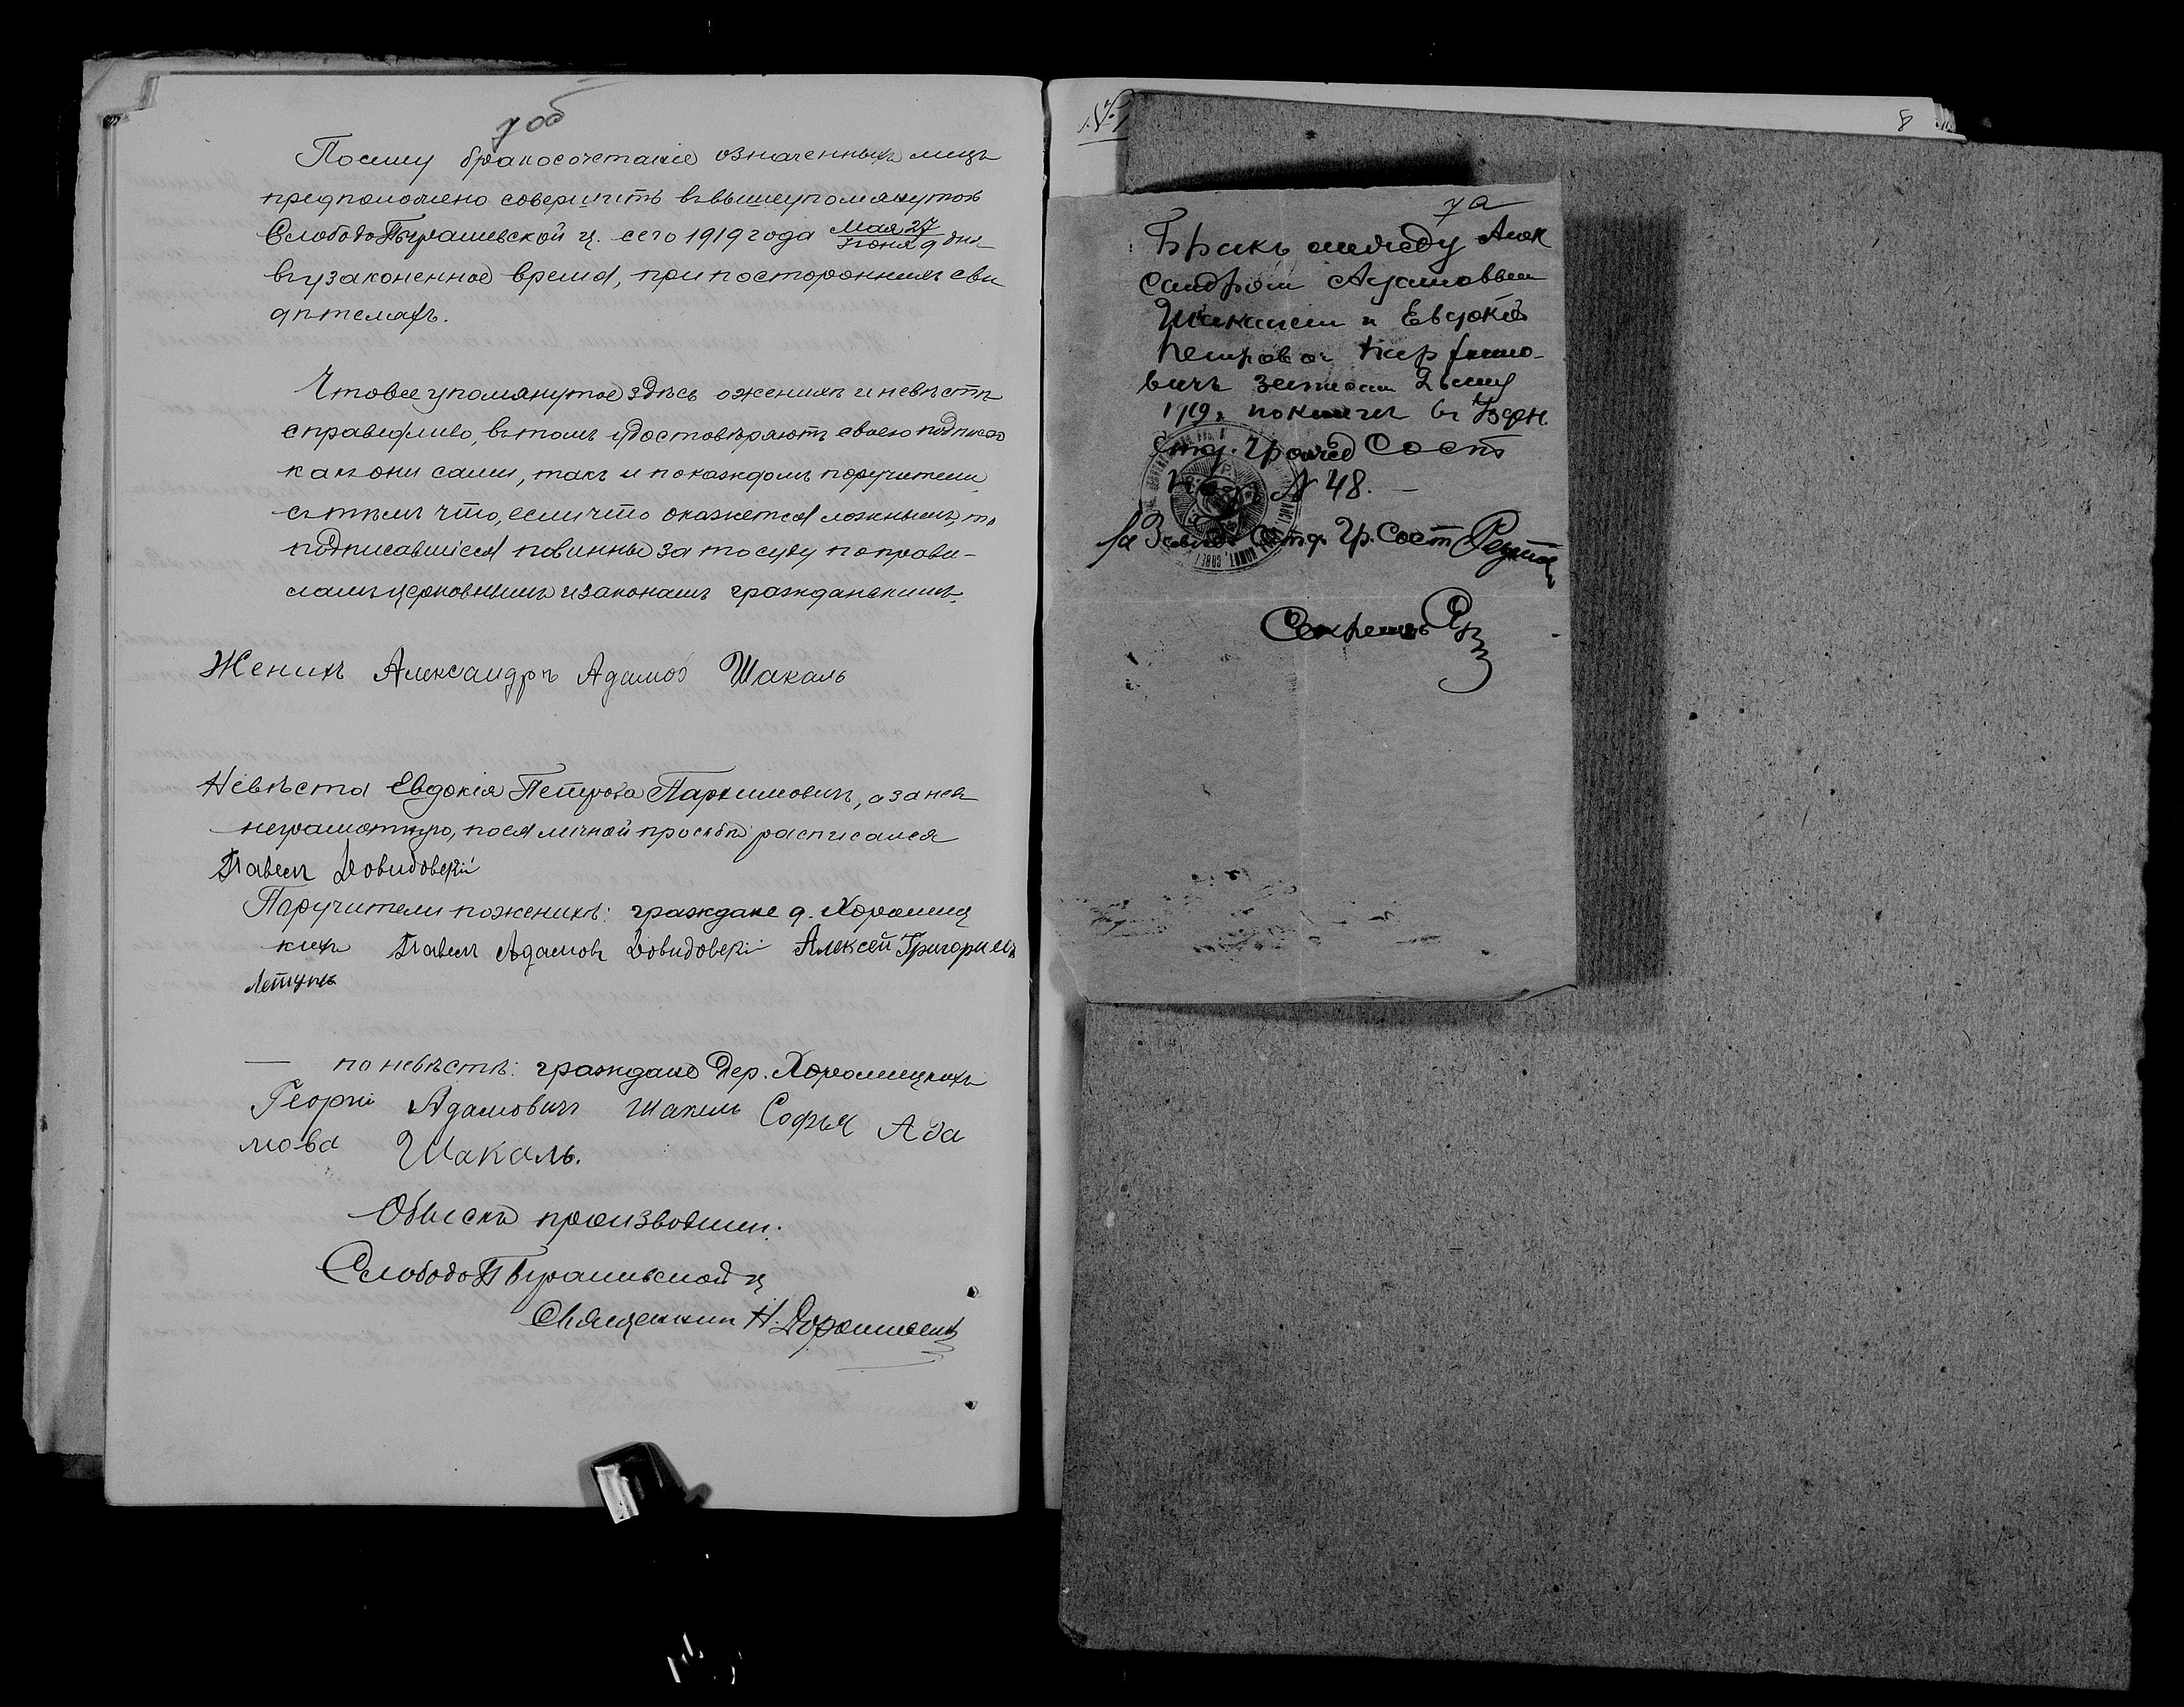 7 об
Посему бракосочетание означенныхъ лицъ
предположено совершить въ вышеупомянутой
Слободо Пырашевской ц. сего 1919 года Мая 27 / Іюня 9 дня
въ узаконенное время, при постороннихъ сви
дѣтеляхъ.
Что все упомянутое здѣсь о женихѣ и невѣстѣ
справедливо, въ томъ удостовѣряютъ своею подписью
какъ они сами, такъ и по каждомъ поручители
съ тѣмъ что, если что окажется ложнымъ, то
подписавшіеся повинны за то суду по прави-
ламъ церковнымъ и законамъ гражданскимъ.
Женихъ Александръ Адамовъ Шакаль
Невѣста Евдокія Петрова Пархимовичъ, а за нея
неграмотную, по ея личной просьбѣ росписался
Павелъ Довидовскій
Поручители по женихѣ: граждане д. Хоромиц
кихъ Павелъ Адамовъ Довидовскій Алексей Григориевъ
Летунъ
— по невѣстѣ: граждане дер. Хоромицкихъ
Георгій Адамовичъ Шакаль Софья Ада
мова Шакаль.
Обыскъ производили:
Слободо Пырашевской ц
Священник Н.
№1
8
7а
Бракъ между Алек
сандром Адамовым
Шакалем и Евдокіей
Петровой Пархимо-
вичъ записан
1919 г. в
Отд. Гражд Сост
№ 48. —
За Завед. Отд. Гр. Сост
Секретарь